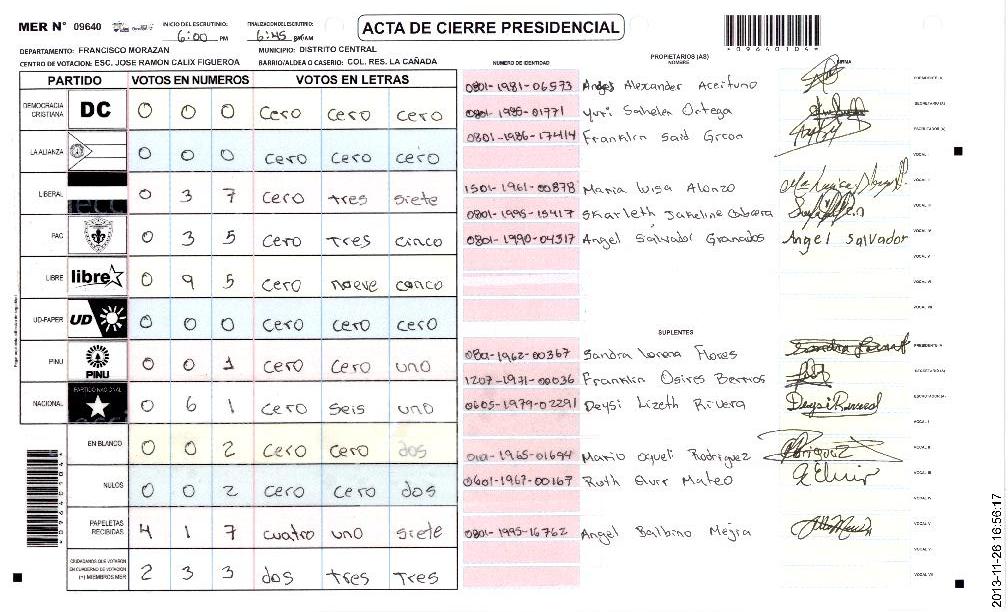 MER N° 09640
INICIO DEL ESCRUTINIO: 6:00 PM
FINALIZACION DEL ESCRUTINIO: 6:45
ACTA DE CIERRE PRESIDENCIAL
09640104
DEPARTAMENTO: FRANCISCO MORAZAN
MUNICIPIO: DISTRITO CENTRAL
CENTRO DE VOTACION: ESC. JOSE RAMON CALIX FIGUEROA
BARRIO/ALDEA O CASERIO: COL. RES. LA CAÑADA
PARTIDO VOTOS EN NUMEROS VOTOS EN LETRAS
DEMOCRACIA CRISTIANA DC 0 0 0 cero cero cero
LA ALIANZA 0 0 0 cero cero cero
LIBERAL 0 3 7 cero tres siete
PAC 0 3 5 cero tres cinco
LIBRE libre 0 9 5 cero nueve cinco
UD-FAPER UD 0 0 0 cero cero cero
PINU PINU 0 0 1 cero cero uno
NACIONAL PARTIDO NACIONAL 0 6 1 cero seis uno
EN BLANCO 0 0 2 cero cero dos
NULOS 0 0 2 cero cero dos
PAPELETAS RECIBIDAS 4 1 7 cuatro uno siete
CIUDADANOS QUE VOTARON EN CUADERNO DE VOTACION (+) MIEMBROS MER 2 3 3 dos tres tres
NUMERO DE IDENTIDAD
PROPIETARIOS (AS)
NOMBRE
FIRMA
0801-1981-06573 Angel Alexander Aceituno PRESIDENTE (A)
0801-1985-01771 Yuri Ortega SECRETARIO (A)
0801-1986-17414 Franklin Said ESCRUTADOR (A)
VOCAL I
1501-1961-00878 Maria Luisa Alonzo VOCAL II
0801-1995-15417 Skarleth Jakeline Cabrera VOCAL III
0801-1990-04317 Angel Salvador Granados Angel Salvador VOCAL IV
VOCAL V
VOCAL VI
VOCAL VII
SUPLENTES
0801-1962-00367 Sandra Lorena Flores PRESIDENTE (A)
1207-1971-00036 Franklin Osires Berrios SECRETARIO (A)
0605-1979-02291 Deysi Lizeth Rivera ESCRUTADOR (A)
VOCAL I
0101-1965-01694 Mario Oqueli Rodriguez VOCAL II
0601-1967-00167 Ruth Mateo VOCAL III
VOCAL IV
0801-1995-16762 Angel Balbino Mejia VOCAL V
VOCAL VI
VOCAL VII
2013-11-26 16:56:17